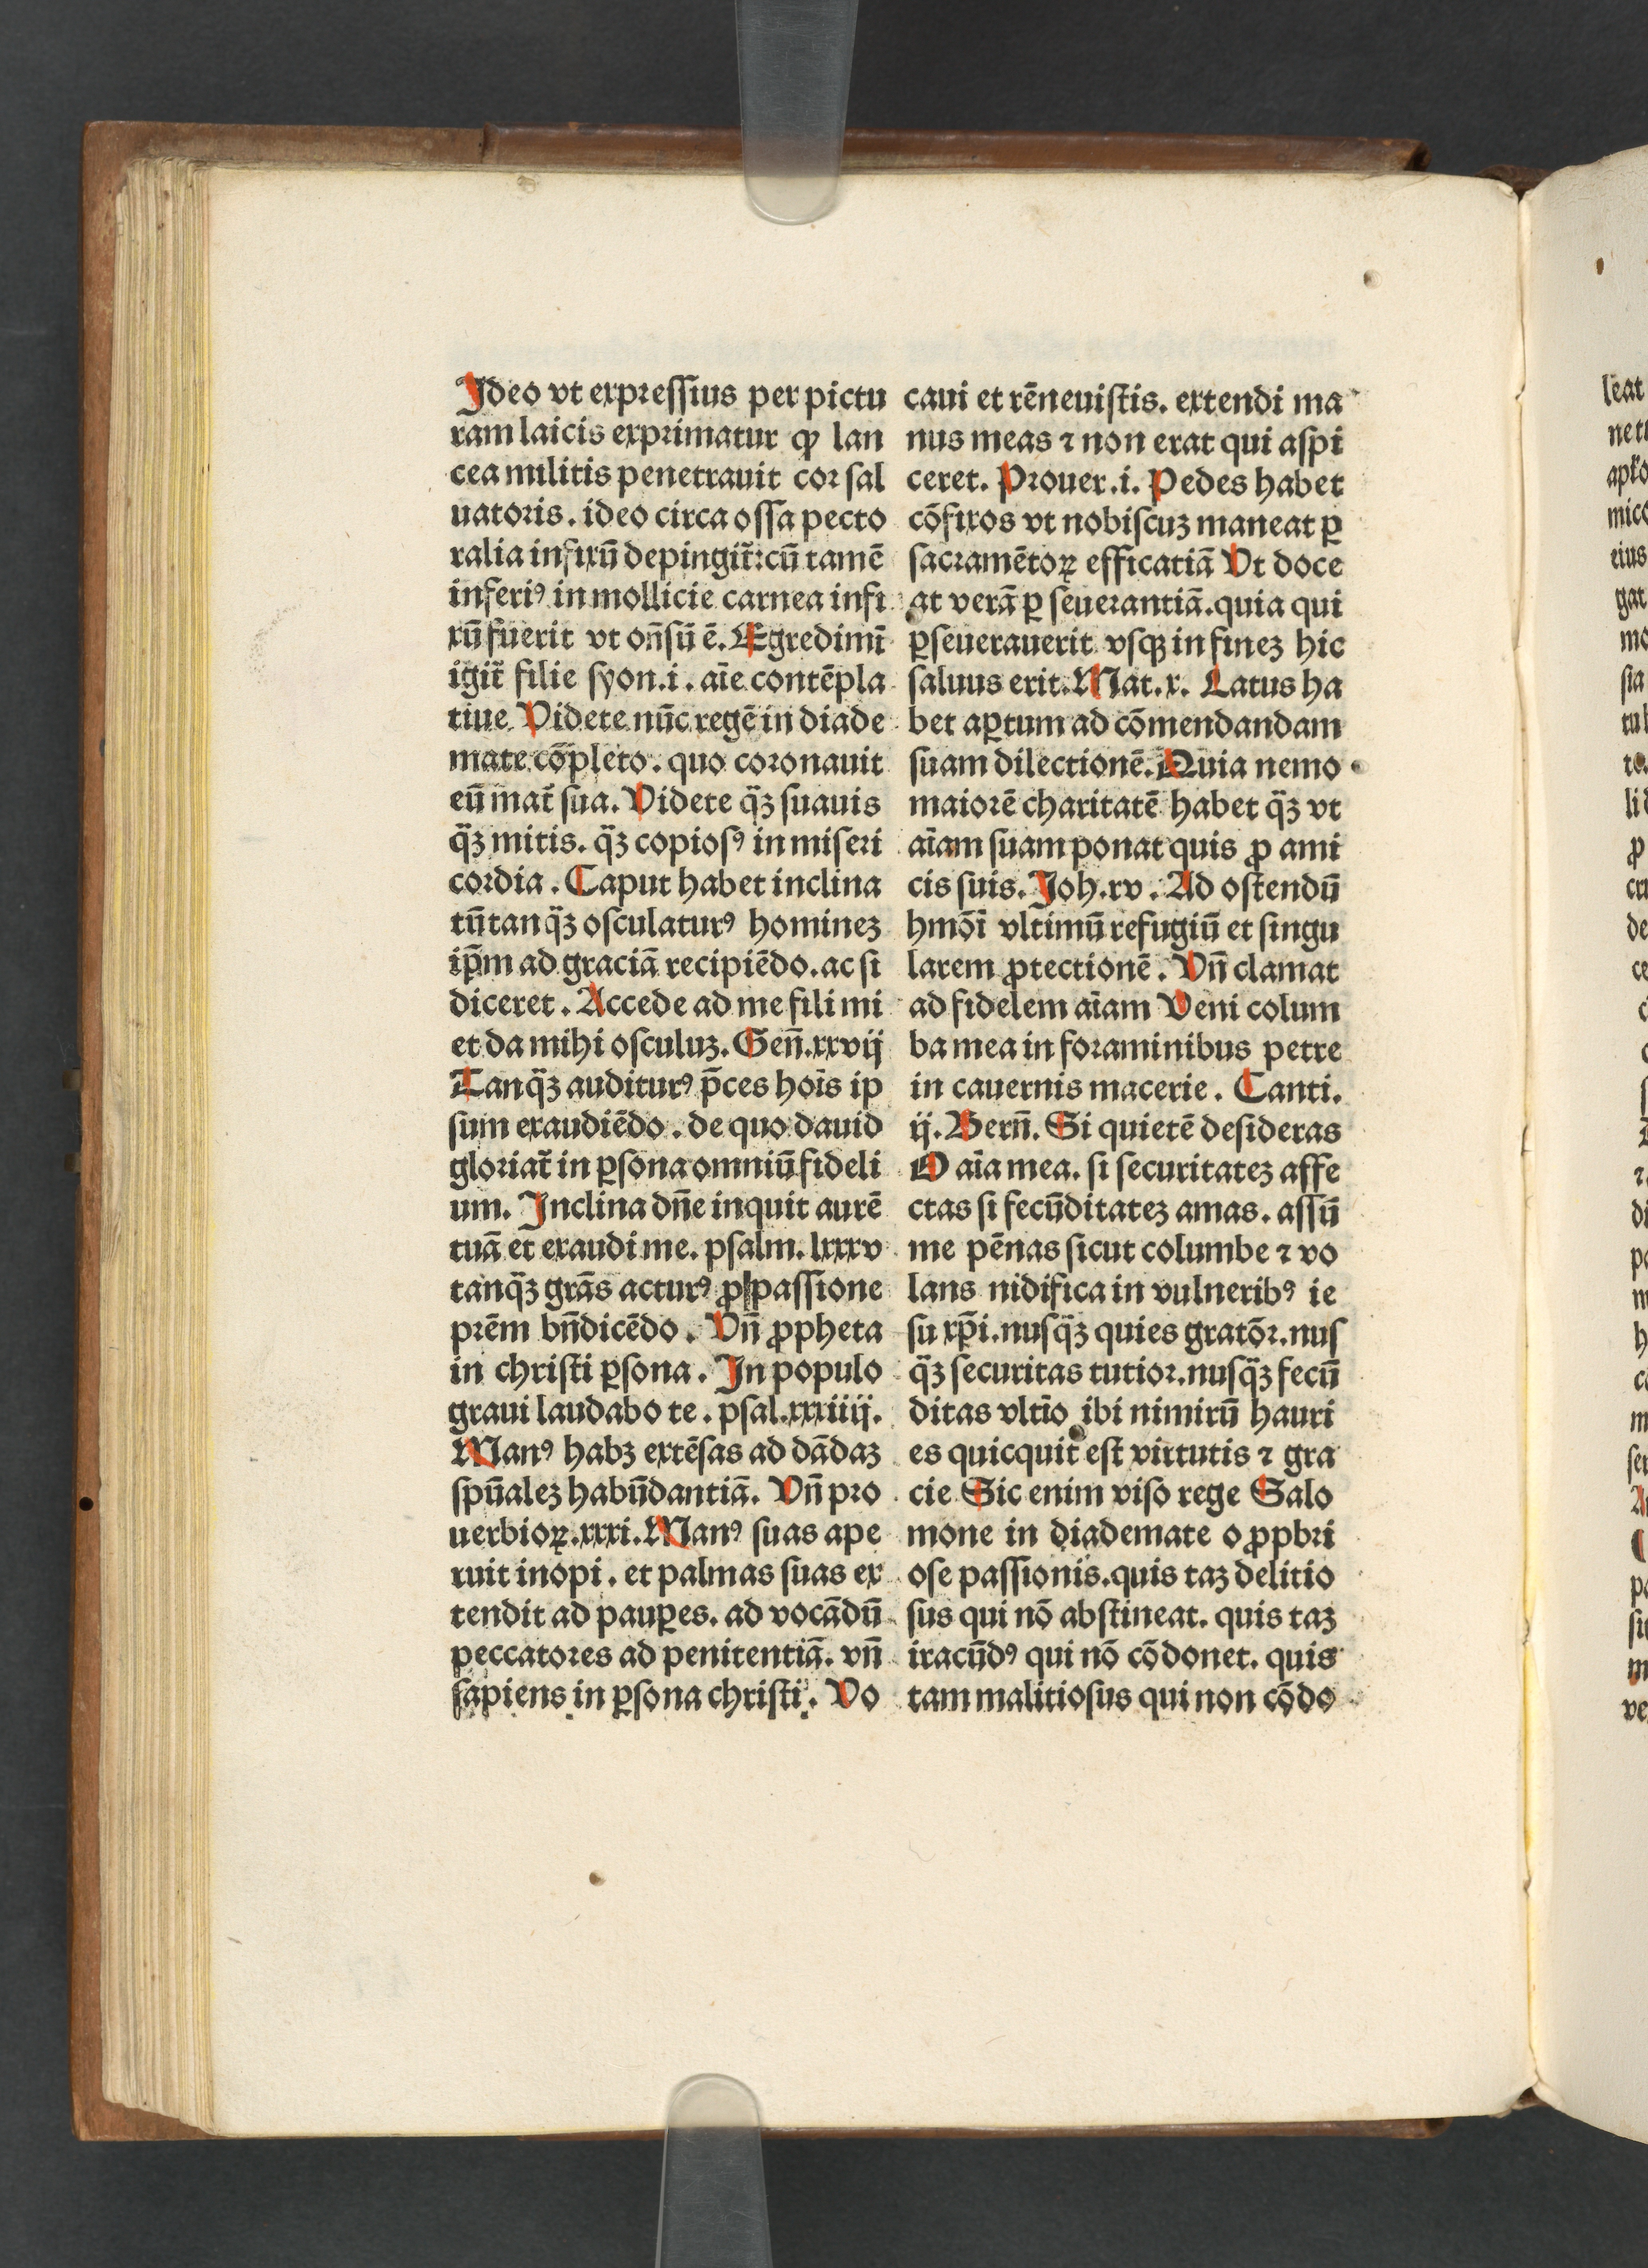 Ideo vt expꝛeſſius per pictu
ram laicis expꝛimatur ꝙ lan
cea militis penetrauit coꝛ ſal
uatoꝛis. ideo circa oſſa pecto
ralia infixū depingit̄: cū tamē
inferiꝰ in mollicie carnea infi
xū fuerit vt on̄ſū ē. Egredimī
igit̄ filie ſyon .i. aīe contēpla
tiue Videte nūc regē in diade
mate cōpleto. quo coꝛonauit
eū mat̄ ſua. Videte q̄ꝫ ſuauis
q̄ꝫ mitis. q̄ꝫ copioſꝰ in miſeri
coꝛdia. Caput habet inclina
tū tanq̄ꝫ oſculaturꝰ hominez
ip̄m ad graciā recipiēdo. ac ſi
diceret. Accede ad me fili mi
et da mihi oſculuꝫ. Gen̄. xxvij
Tanq̄ꝫ auditurꝰ p̄ces hoīs ip
ſum exaudiēdo. de quo dauid
gloꝛiat̄ in ꝑſona omniū fideli
um. Inclina dn̄e inquit aurē
tuā et exaudi me. pſalm. lxxxv
tanq̄ꝫ grās acturꝰ ꝓ paſſione
pꝛēm bn̄dicēdo. Vn̄ ꝓpheta
in chriſti ꝑſona. In populo
graui laudabo te. pſal. xxxiiij.
Manꝰ habꝫ extēſas ad dādaꝫ
ſpūaleꝫ habūdantiā. Vn̄ pꝛo
uerbioꝝ. xxxi. Manꝰ ſuas ape
ruit inopi. et palmas ſuas ex
tendit ad pauꝑes. ad vocādū
peccatoꝛes ad penitentiā. vn̄
ſapiens in ꝑſona chriſti. Vo
caui et rēneuiſtis. extendi ma
nus meas ⁊ non erat qui aſpi
ceret. Pꝛouer. i. Pedes habet
cōfixos vt nobiſcuꝫ maneat ꝑ
ſacramētoꝝ efficatiā Vt doce
at verā ꝑ ſeuerantiā. quia qui
ꝑſeuerauerit vſqꝫ in fineꝫ hic
ſaluus erit. Mat. x. Latus ha
bet aꝑtum ad cōmendandam
ſuam dilectionē. Quia nemo
maioꝛē charitatē habet q̄ꝫ vt
aīam ſuam ponat quis ꝓ ami
cis ſuis. Joh. xv. Ad oſtendū
hmōi vltimū refugiū et ſingu
larem ꝓtectionē. Vn̄ clamat
ad fidelem aīam Veni colum
ba mea in foꝛaminibus petre
in cauernis macerie. Canti.
ij. Bern̄. Si quietē deſideras
O aīa mea. ſi ſecuritateꝫ affe
ctas ſi fecūditateꝫ amas. aſſū
me pēnas ſicut columbe ⁊ vo
lans nidifica in vulneribꝰ ie
ſu xp̄i. nuſq̄ꝫ quies gratōꝛ. nuſ
q̄ꝫ ſecuritas tutioꝛ. nuſq̄ꝫ fecū
ditas vltīo ibi nimirū hauri
es quicquit eſt virtutis ⁊ gra
cie Sic enim viſo rege Salo
mone in diademate o ꝓpbꝛi
oſe paſſionis. quis taꝫ delitio
ſus qui nō abſtineat. quis taꝫ
iracūdꝰ qui nō cōdonet. quis
tam malitioſus qui non cōdo